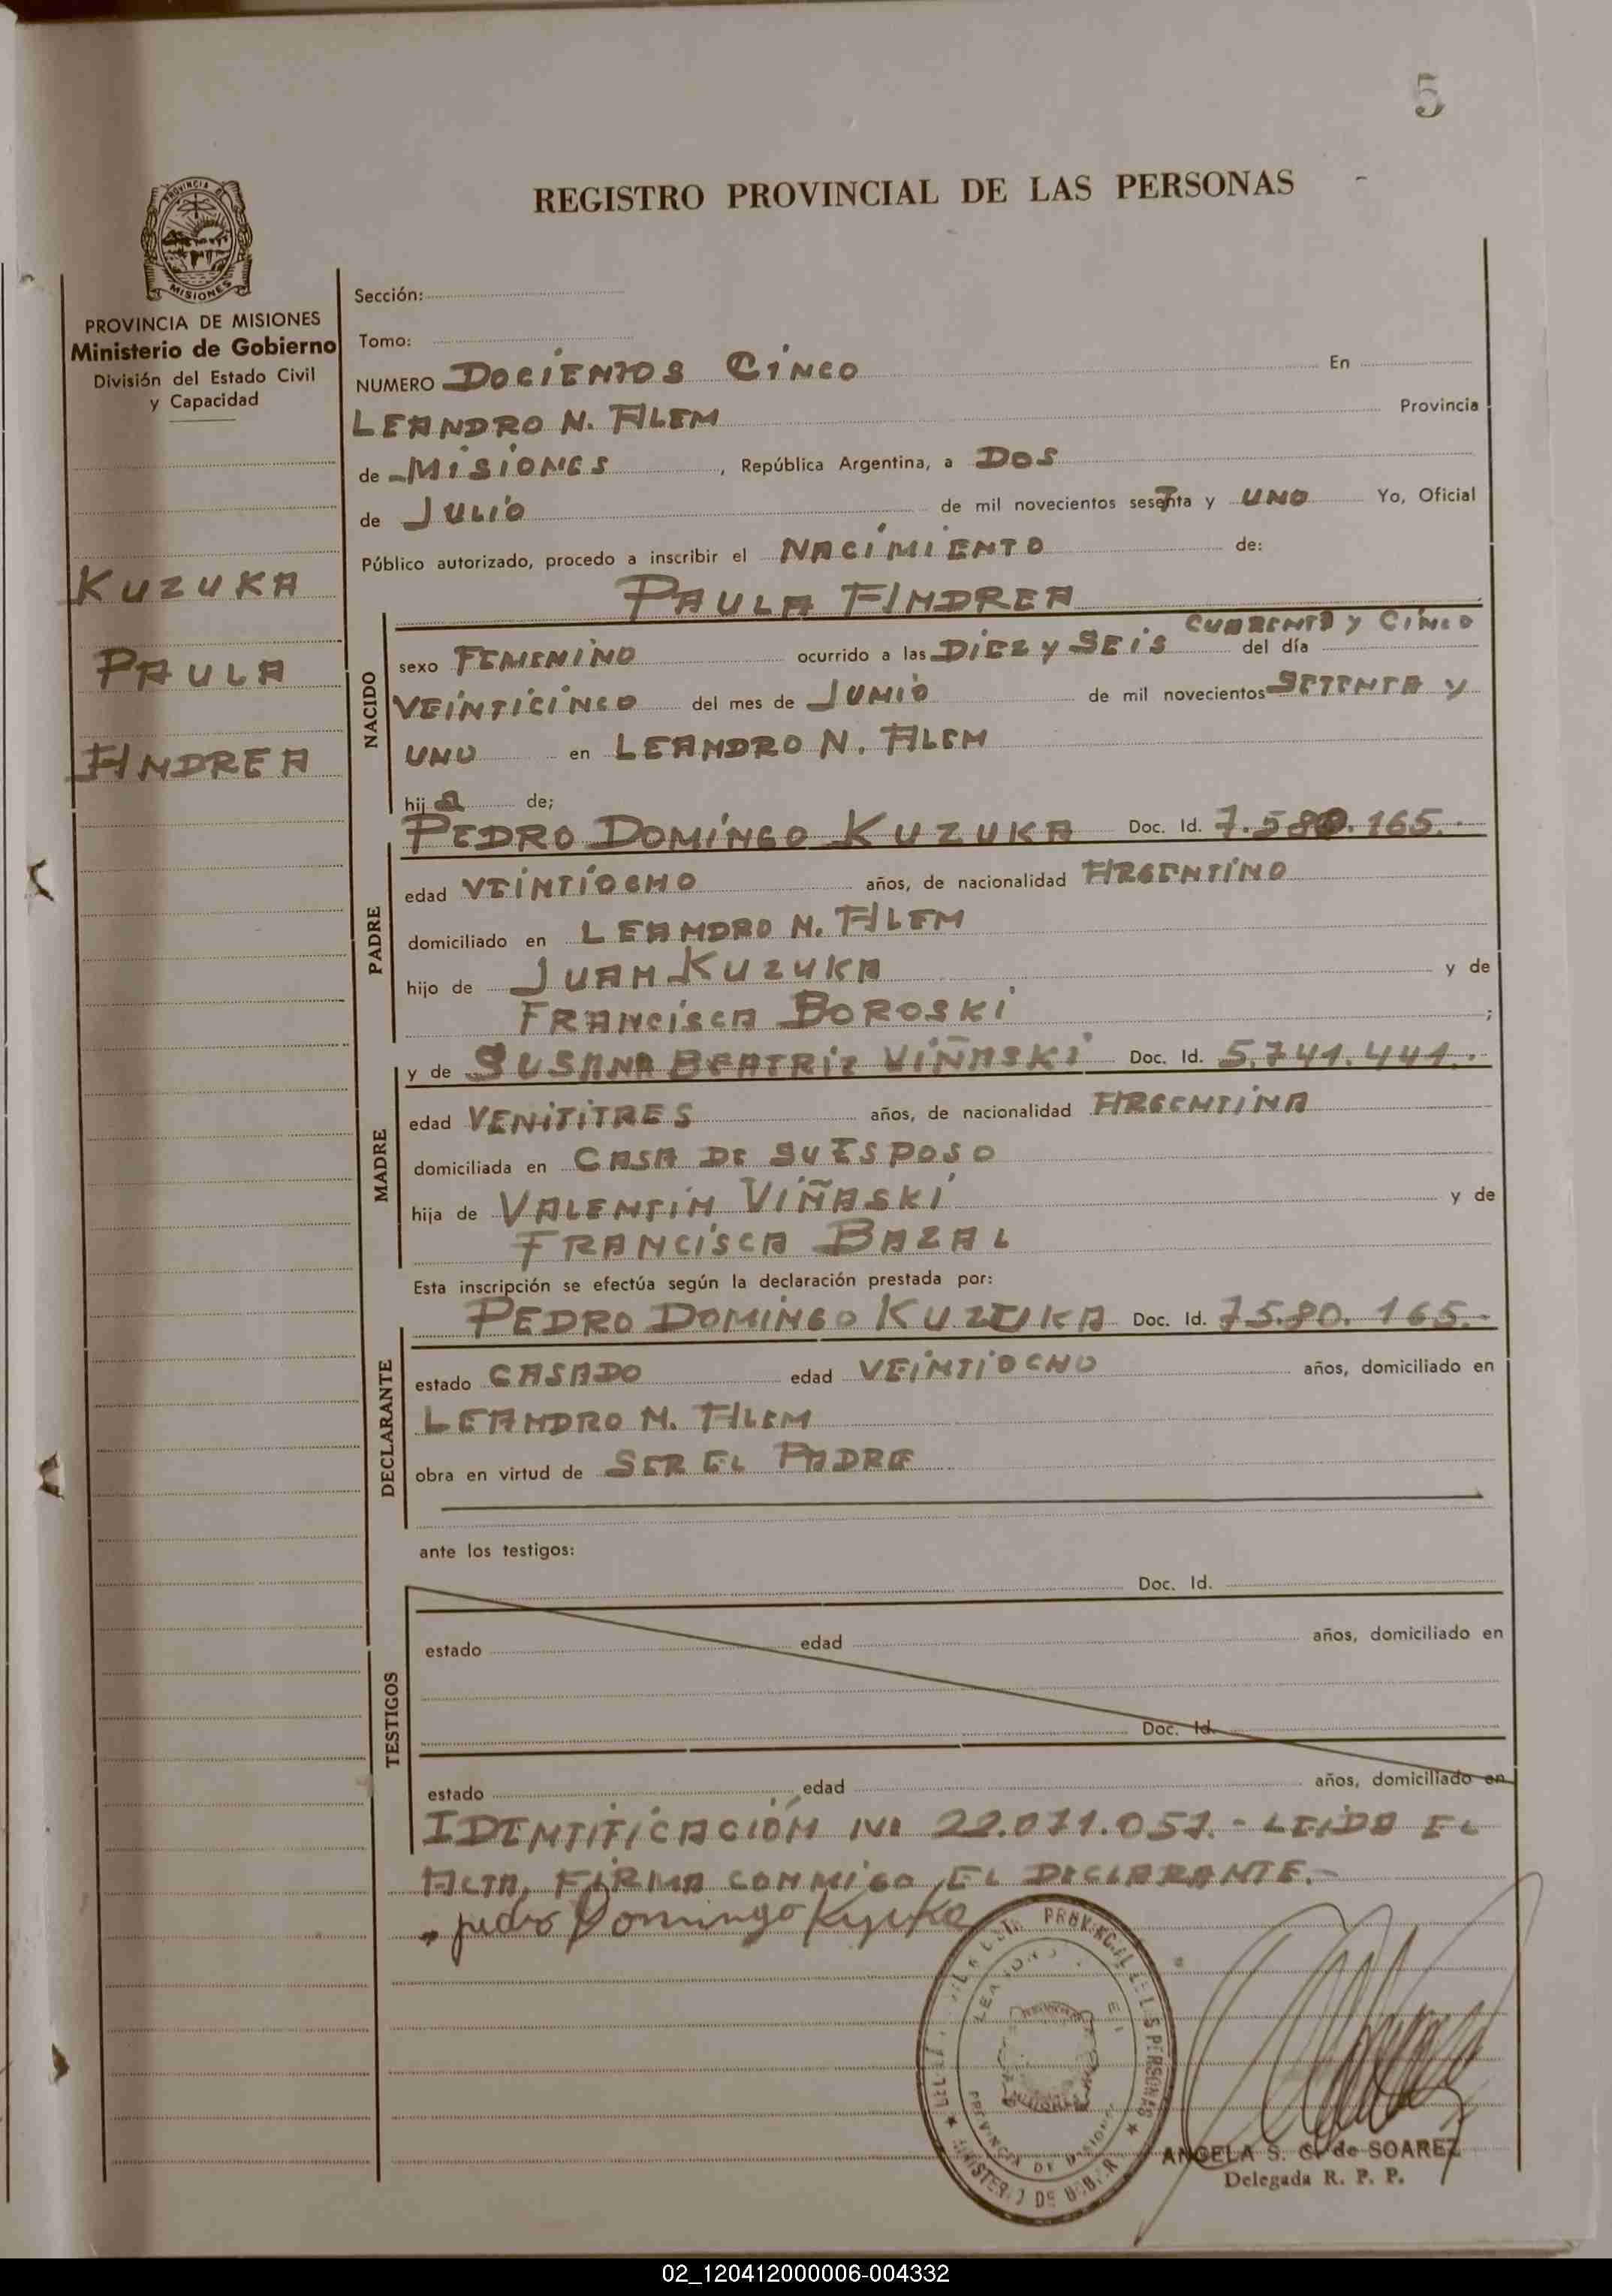 5
REGISTRO PROVINCIAL DE LAS PERSONAS
MISIONES
PROVINCIA DE MISIONES
Ministerio de Gobierno
División del Estado Civil
y Capacidad
KUZUKA
PAULA
ANDREA
Sección:
Tomo:
NUMERO DOCIENTOS CINCO En
LEANDRO N. ALEM Provincia
de MISIONES, República Argentina, a DOS
de JULIO de mil novecientos setenta y UNO Yo, Oficial
Público autorizado, procedo a inscribir el NACIMIENTO de:
PAULA ANDREA
NACIDO
CUARENTA y CINCO
sexo FEMENINO ocurrido a las DIEZ y SEIS del día
VEINTICINCO del mes de JUNIO de mil novecientos SETENTA y
UNO en LEANDRO N. ALEM
hija de;
PADRE
PEDRO DOMINGO KUZUKA Doc. Id. 7.580.165.-
edad VEINTIOCHO años, de nacionalidad ARGENTINO
domiciliado en LEANDRO N. ALEM
hijo de JUAN KUZUKA y de
FRANCISCA BOROSKI ;
MADRE
y de SUSANA BEATRIZ VIÑASKI Doc. Id. 5.741.441.-
edad VENITITRES años, de nacionalidad ARGENTINA
domiciliada en CASA DE SU ESPOSO
hija de VALENTIN VIÑASKI y de
FRANCISCA BAZAL
Esta inscripción se efectúa según la declaración prestada por:
DECLARANTE
PEDRO DOMINGO KUZUKA Doc. Id. 7580.165.-
estado CASADO edad VEINTIOCHO años, domiciliado en
LEANDRO N. ALEM
obra en virtud de SER EL PADRE
ante los testigos:
TESTIGOS
Doc. Id.
estado edad años, domiciliado en
Doc. Id.
estado edad años, domiciliado en
IDENTIFICACIÓN Nº 22.071.057.- LEIDO EL
ACTA, FIRMA CONMIGO EL DECLARANTE.-
Pedro Domingo Kuzuka
PROVINCIAL DE LAS PERSONAS
PROVINCIA DE MISIONES
MINISTERIO DE GOBER
ANGELA S. C. de SOAREZ
Delegada R. P. P.
02_120412000006-004332